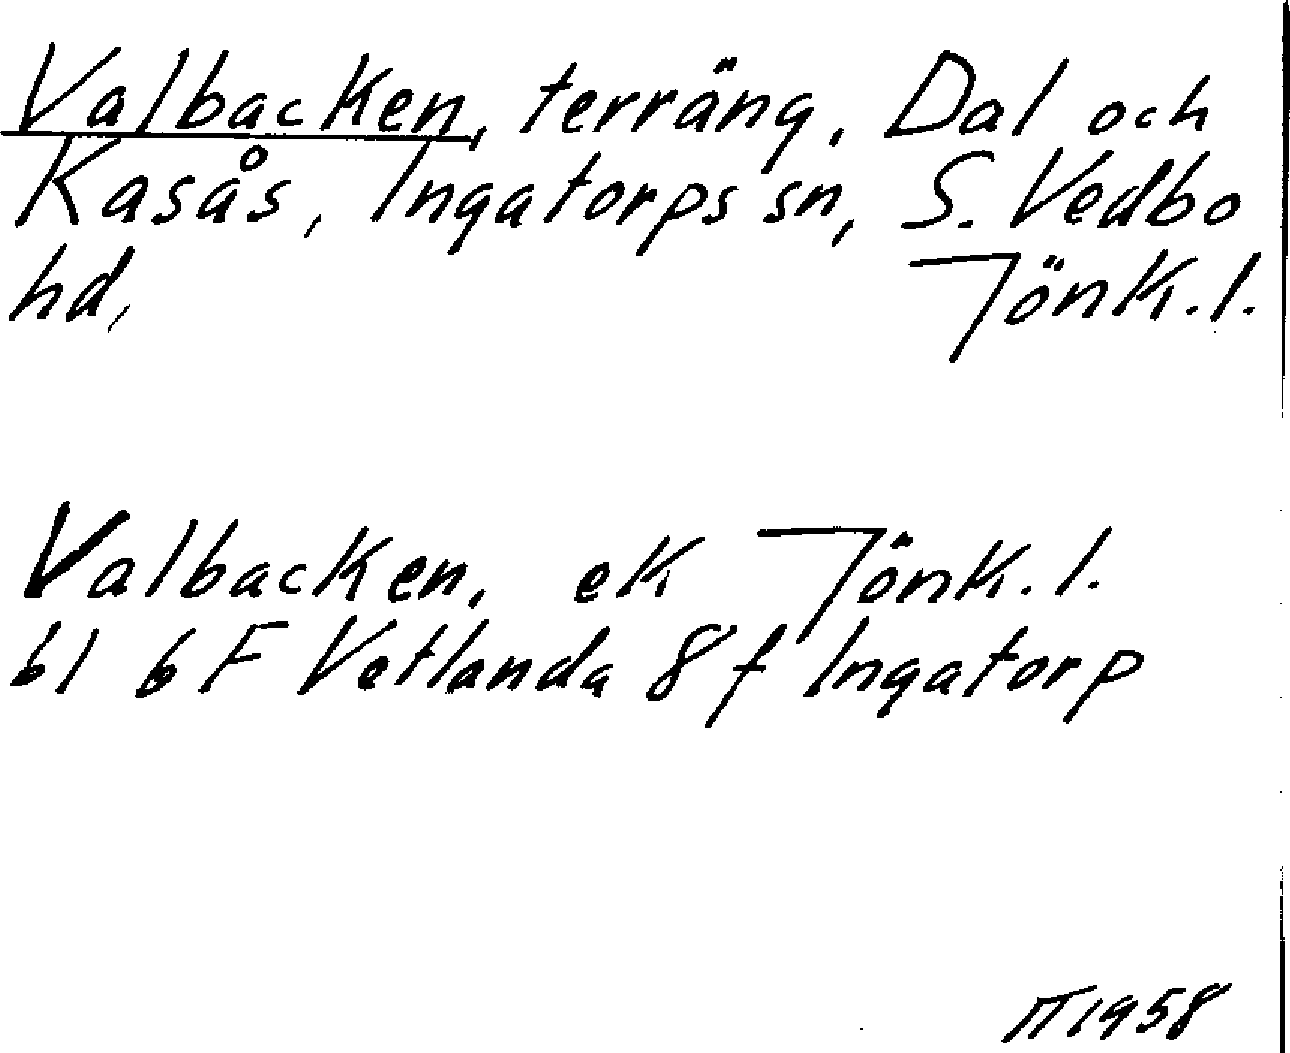 Valbacken, terräng, Dal och
Kasås, Ingatorps sn, S. Vedbo
hd, Jönk.l.
Valbacken, ek Jönk.l.
bl 6F Vetlanda 8f Ingatorp
1958